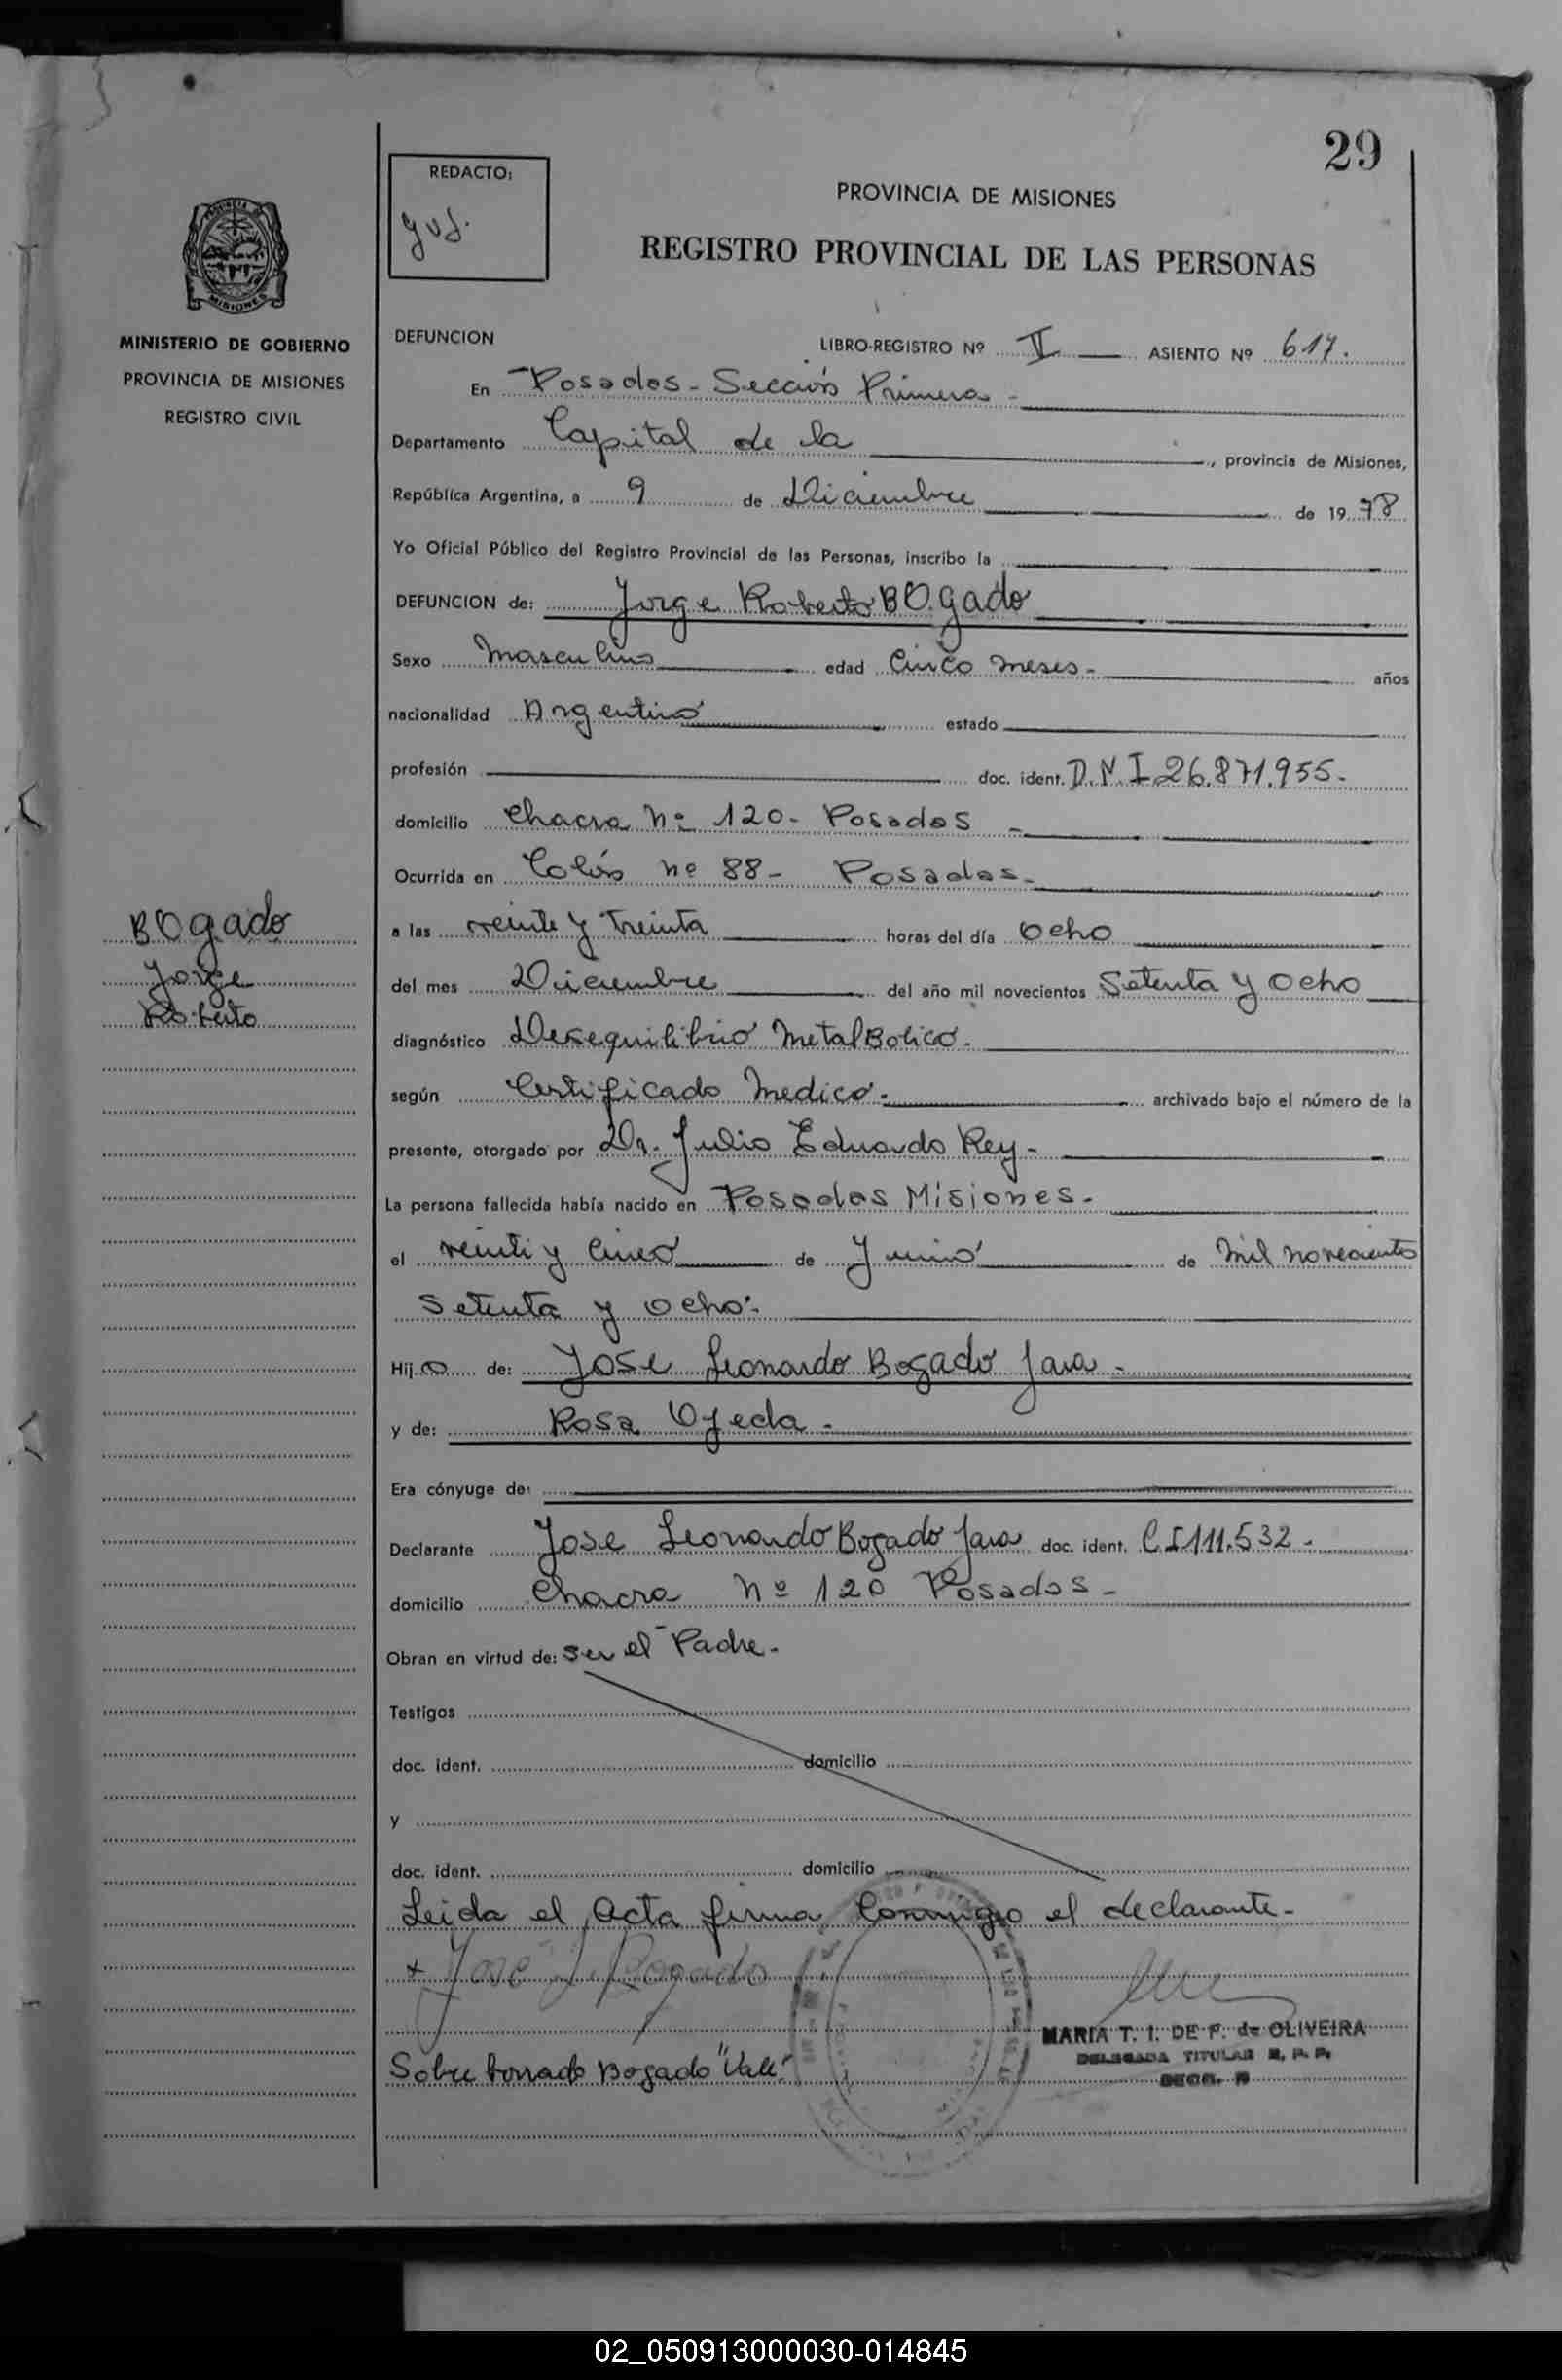 29
REDACTO:
PROVINCIA DE MISIONES
REGISTRO PROVINCIAL DE LAS PERSONAS
MISIONES
MINISTERIO DE GOBIERNO
PROVINCIA DE MISIONES
REGISTRO CIVIL
DEFUNCION LIBRO-REGISTRO Nº II ASIENTO Nº 617.
En Posadas - Sección Primera -
Departamento Capital de la , provincia de Misiones,
República Argentina, a 9 de Diciembre de 1978
Yo Oficial Público del Registro Provincial de las Personas, inscribo la
DEFUNCION de: Jorge Roberto BOgado
Sexo Masculino edad Cinco meses - años
nacionalidad Argentino estado
profesión doc. ident. D.N.I 26.871.955.
domicilio Chacra Nº 120 - Posadas -
Ocurrida en Colón nº 88 - Posadas -
BOgado
Jorge
Roberto
a las veinte y treinta horas del día Ocho
del mes Diciembre del año mil novecientos Setenta y Ocho
diagnóstico Desequilibrio MetalBolico.
según Certificado Medico - archivado bajo el número de la
presente, otorgado por Dr. Julio Eduardo Rey -
La persona fallecida había nacido en Posadas Misiones -
el veinti y Cinco de Junio de Mil novecientos
Setenta y ocho.
Hijo de: Jose Leonardo Bogado Jara -
y de: Rosa Ojeda -
Era cónyuge de:
Declarante Jose Leonardo Bogado Jara doc. ident. C.I 111.532 -
domicilio Chacra Nº 120 Posadas -
Obran en virtud de: Ser el Padre -
Testigos
doc. ident. domicilio
y
doc. ident. domicilio
Leida el Acta firma Conmigo el declarante -
+ José L. Bogado
MARIA T. I. DE F. de OLIVEIRA
DELEGADA TITULAR R. P. P.
Sobre borrado Bogado "Vale"
02_050913000030-014845